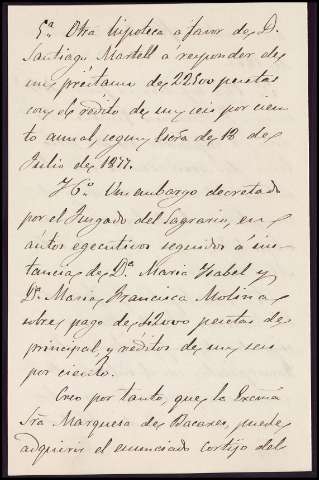 5ª Otra hipoteca a favor de D.
Santiago Martell á responder de
un préstamo de 22500 pesetas
con el rédito de un seis por cien
to anual, segun Escra de 13 de
Julio de 1877.
Un embargo decretado
por el Juzgado del Sagrario, en
autos egecutivos seguidos á ins-
tancias de Dª Maria Isabel y
Dª Maria Francisca Molina
sobre pago de pesetas de
principal, y réditos de un seis
por ciento.
Creo por tanto, que la Excma
Sra Marquesa de Bacares, puede
adquirir el enunciado cortijo del